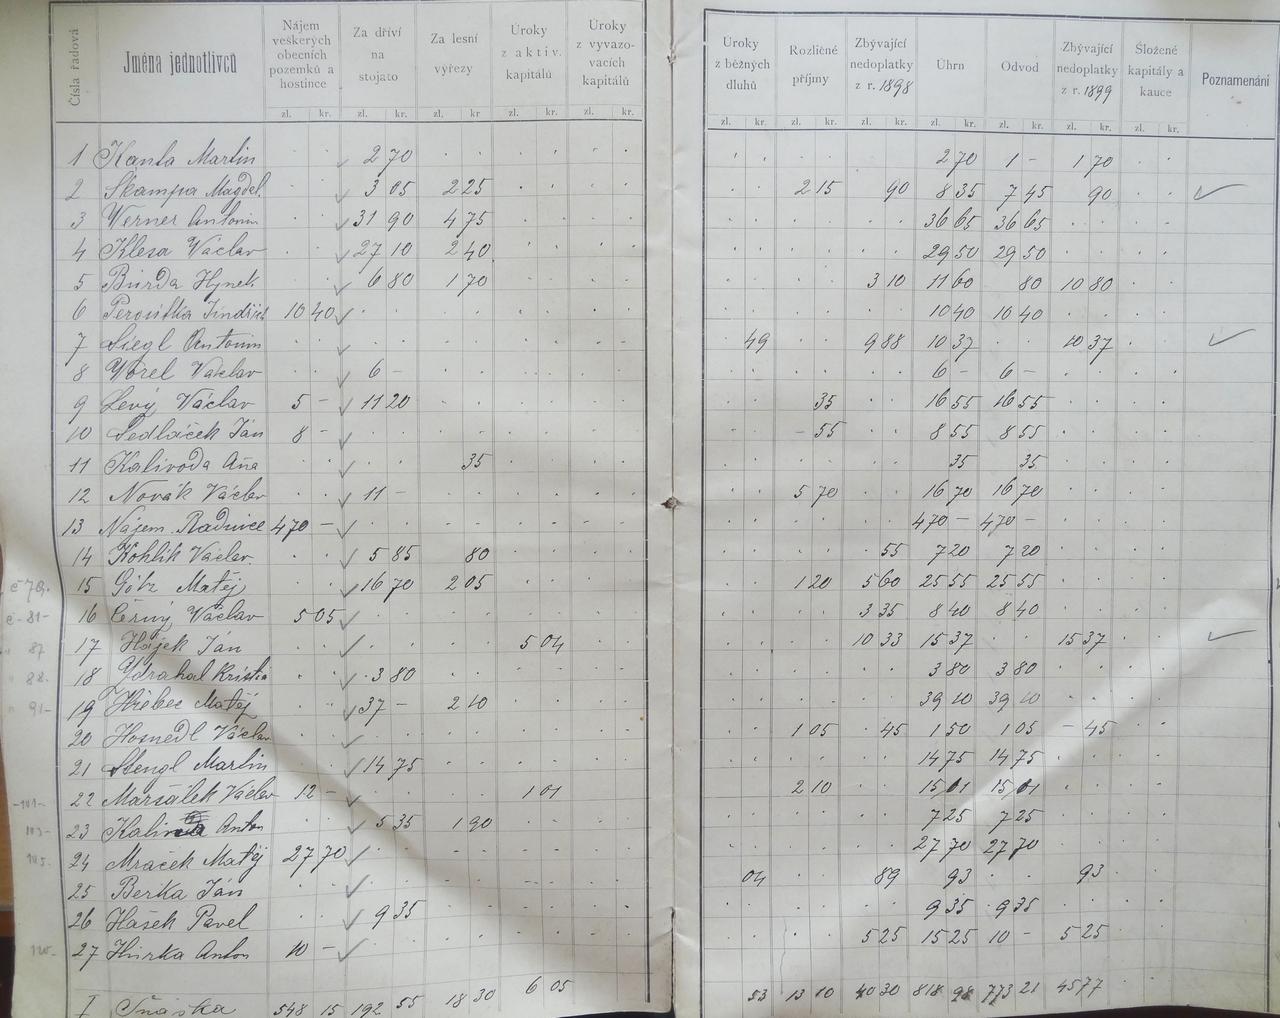 Čísla řadová Jména jednotlivců Nájem veškerých obecních pozemků a hostince Za dříví na stojato Za lesní výřezy Úroky z aktiv. kapitálů Úroky z vyvazovacích kapitálů Úroky z běžných dluhů Rozličné příjmy Zbývající nedoplatky z r. 1898 Úhrn Odvod Zbývající nedoplatky z r. 1899 Složené kapitály a kauce Poznamenání
zl. kr. zl. kr. zl. kr zl. kr. zl. kr. zl. kr. zl. kr. zl. kr. zl. kr. zl. kr. zl. kr. zl. kr.
1 Kanta Martin 2 70 2 70 1 - 1 70
2 Škampa Magdel. 3 05 2 25 2 15 90 8 35 7 45 90
3 Werner Antonin 31 90 4 75 36 65 36 65
4 Klesa Václav 27 10 2 40 29 50 29 50
5 Burda Hynek 6 80 1 70 3 10 11 60 80 10 80
6 Jindřich 10 40 10 40 10 40
7 Siegl Antonin 49 9 88 10 37 10 37
8 Vorel Václav 6 - 6 - 6 -
9 Levý Václav 5 - 11 20 35 16 55 16 55
10 Sedláček Ján 8 - - 55 8 55 8 55
11 Kalivoda Aña 35 35 35
12 Novák Václav 11 - 5 70 16 70 16 70
13 Nájem Radnice 470 - 470 - 470 -
14 Kohlik Václav 5 85 80 55 7 20 7 20
15 Götz Matěj 16 70 2 05 1 20 5 60 25 55 25 55
č - 81 -
16 Černý Václav 5 05 3 35 8 40 8 40
87
17 Hájek Ján 5 04 10 33 15 37 15 37
88.
18 3 80 3 80 3 80
91 -
19 Hřebec Matěj 37 - 2 10 39 10 39 10
20 Hosnedl Václav 1 05 45 1 50 1 05 - 45
21 Stengl Martin 14 75 14 75 14 75
22 Maršálek Václav 12 - 1 01 2 10 15 01
23 Anton 5 35 1 90 7 25 7 25
24 Mraček Matěj 27 70 27 70 27 70
25 Berka Ján 04 89 93 93
26 Hašek Pavel 9 35 9 35 9 35
27 Hurka Anton 10 - 5 25 15 25 10 - 5 25
I Snáška 548 15 192 55 18 30 6 05 53 13 10 40 30 818 98 773 21 45 77